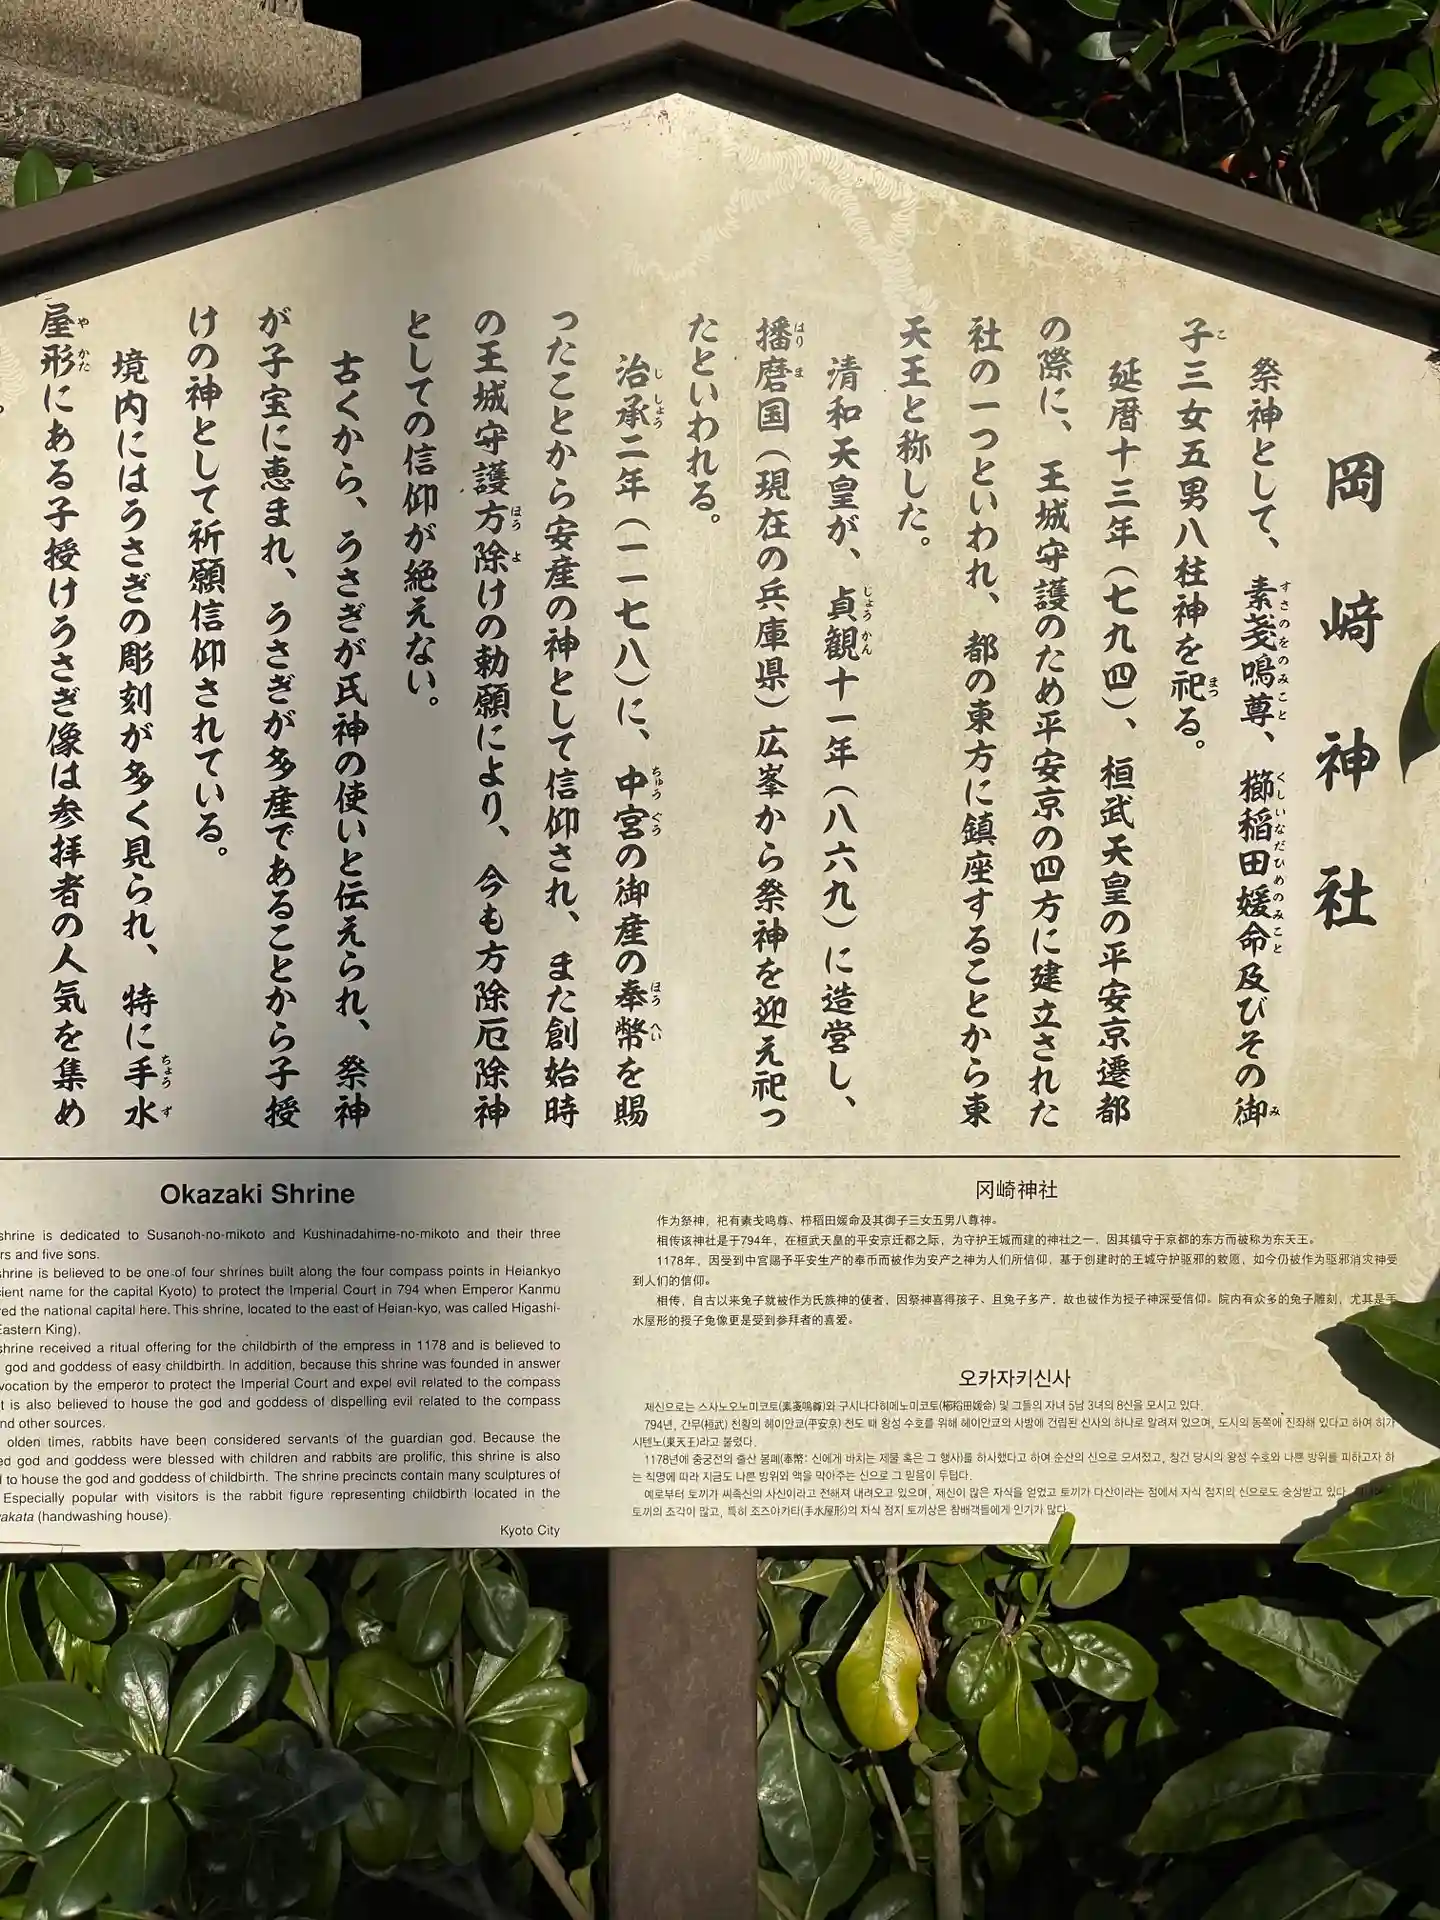 岡﨑神社
祭神として、素戔嗚尊、櫛稲田媛命及びその御
子三女五男八柱神を祀る。
延暦十三年（七九四）、桓武天皇の平安京遷都
の際に、王城守護のため平安京の四方に建立された
社の一つといわれ、都の東方に鎮座することから東
天王と称した。
清和天皇が、貞観十一年（八六九）に造営し、
播磨国（現在の兵庫県）広峯から祭神を迎え祀っ
たといわれる。
治承二年（一一七八）に、中宮の御産の奉幣を賜
ったことから安産の神として信仰され、また創始時
の王城守護方除けの勅願により、今も方除厄除神
としての信仰が絶えない。
古くから、うさぎが氏神の使いと伝えられ、祭神
が子宝に恵まれ、うさぎが多産であることから子授
けの神として祈願信仰されている。
境内にはうさぎの彫刻が多く見られ、特に手水
屋形にある子授けうさぎ像は参拝者の人気を集め
Okazaki Shrine
shrine is dedicated to Susanoh-no-mikoto and Kushinadahime-no-mikoto and their three
rs and five sons.
shrine is believed to be one of four shrines built along the four compass points in Heiankyo
cient name for the capital Kyoto) to protect the Imperial Court in 794 when Emperor Kanmu
ed the national capital here. This shrine, located to the east of Heian-kyo, was called Higashi-
Eastern King).
shrine received a ritual offering for the childbirth of the empress in 1178 and is believed to
god and goddess of easy childbirth. In addition, because this shrine was founded in answer
vocation by the emperor to protect the Imperial Court and expel evil related to the compass
t is also believed to house the god and goddess of dispelling evil related to the compass
nd other sources.
olden times, rabbits have been considered servants of the guardian god. Because the
ed god and goddess were blessed with children and rabbits are prolific, this shrine is also
d to house the god and goddess of childbirth. The shrine precincts contain many sculptures of
Especially popular with visitors is the rabbit figure representing childbirth located in the
yakata (handwashing house).
Kyoto City
冈崎神社
作为祭神，祀有素戋鸣尊、栉稻田媛命及其御子三女五男八尊神。
相传该神社是于794年，在桓武天皇的平安京迁都之际，为守护王城而建的神社之一，因其镇守于京都的东方而被称为东天王。
1178年，因受到中宫赐予平安生产的奉币而被作为安产之神为人们所信仰，基于创建时的王城守护驱邪的敕愿，如今仍被作为驱邪消灾神受
到人们的信仰。
相传，自古以来兔子就被作为氏族神的使者，因祭神喜得孩子、且兔子多产，故也被作为授子神深受信仰。院内有众多的兔子雕刻，尤其是手
水屋形的授子兔像更是受到参拜者的喜爱。
오카자키신사
제신으로는 스사노오노미코토(素戔嗚尊)와 구시나다히메노미코토(櫛稻田媛命) 및 그들의 자녀 5남 3녀의 8신을 모시고 있다.
794년, 간무(桓武) 천황의 헤이안쿄(平安京) 천도 때 왕성 수호를 위해 헤이안쿄의 사방에 건립된 신사의 하나로 알려져 있으며, 도시의 동쪽에 진좌해 있다고 하여 히가
시텐노(東天王)라고 불렸다.
1178년에 중궁전의 출산 봉폐(奉幣: 신에게 바치는 제물 혹은 그 행사)를 하사했다고 하여 순산의 신으로 모셔졌고, 창건 당시의 왕성 수호와 나쁜 방위를 피하고자 하
는 칙명에 따라 지금도 나쁜 방위와 액을 막아주는 신으로 그 믿음이 두텁다.
예로부터 토끼가 씨족신의 사신이라고 전해져 내려오고 있으며, 제신이 많은 자식을 얻었고 토끼가 다산이라는 점에서 자식 점지의 신으로도 숭상받고 있다.
토끼의 조각이 많고, 특히 조즈야카타(手水屋形)의 자식 점지 토끼상은 참배객들에게 인기가 많다.